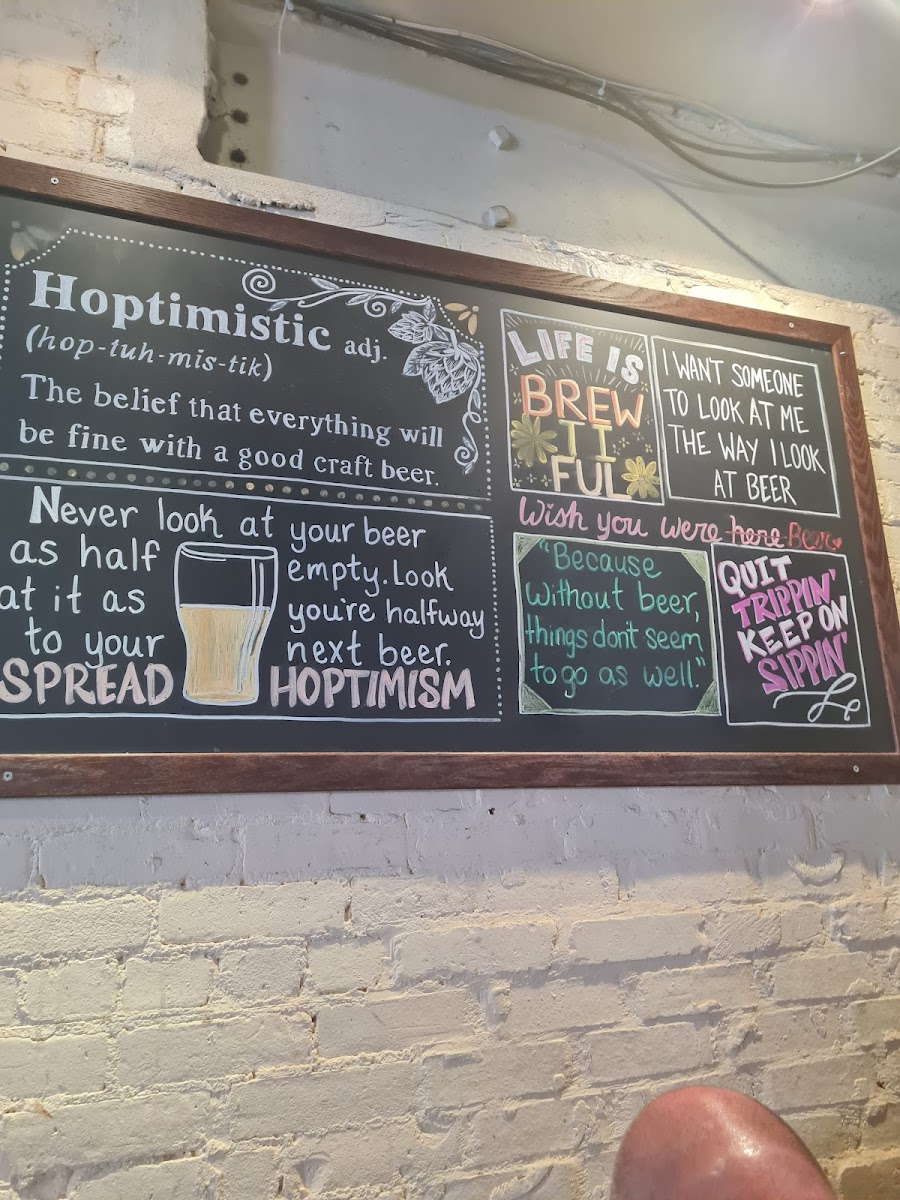 Hoptimistic adj.
(hop-tuh-mis-tik)
The belief that everything will
be fine with a good craft beer.
Never look at your beer
as half empty. Look
at it as you're halfway
to your next beer.
SPREAD HOPTIMISM
LIFE IS
BREW
TI
FUL
I WANT SOMEONE
TO LOOK AT ME
THE WAY I LOOK
AT BEER
Wish you were here Beer
"Because
without beer,
things don't seem
to go as well."
QUIT
TRIPPIN'
KEEP ON
SIPPIN'